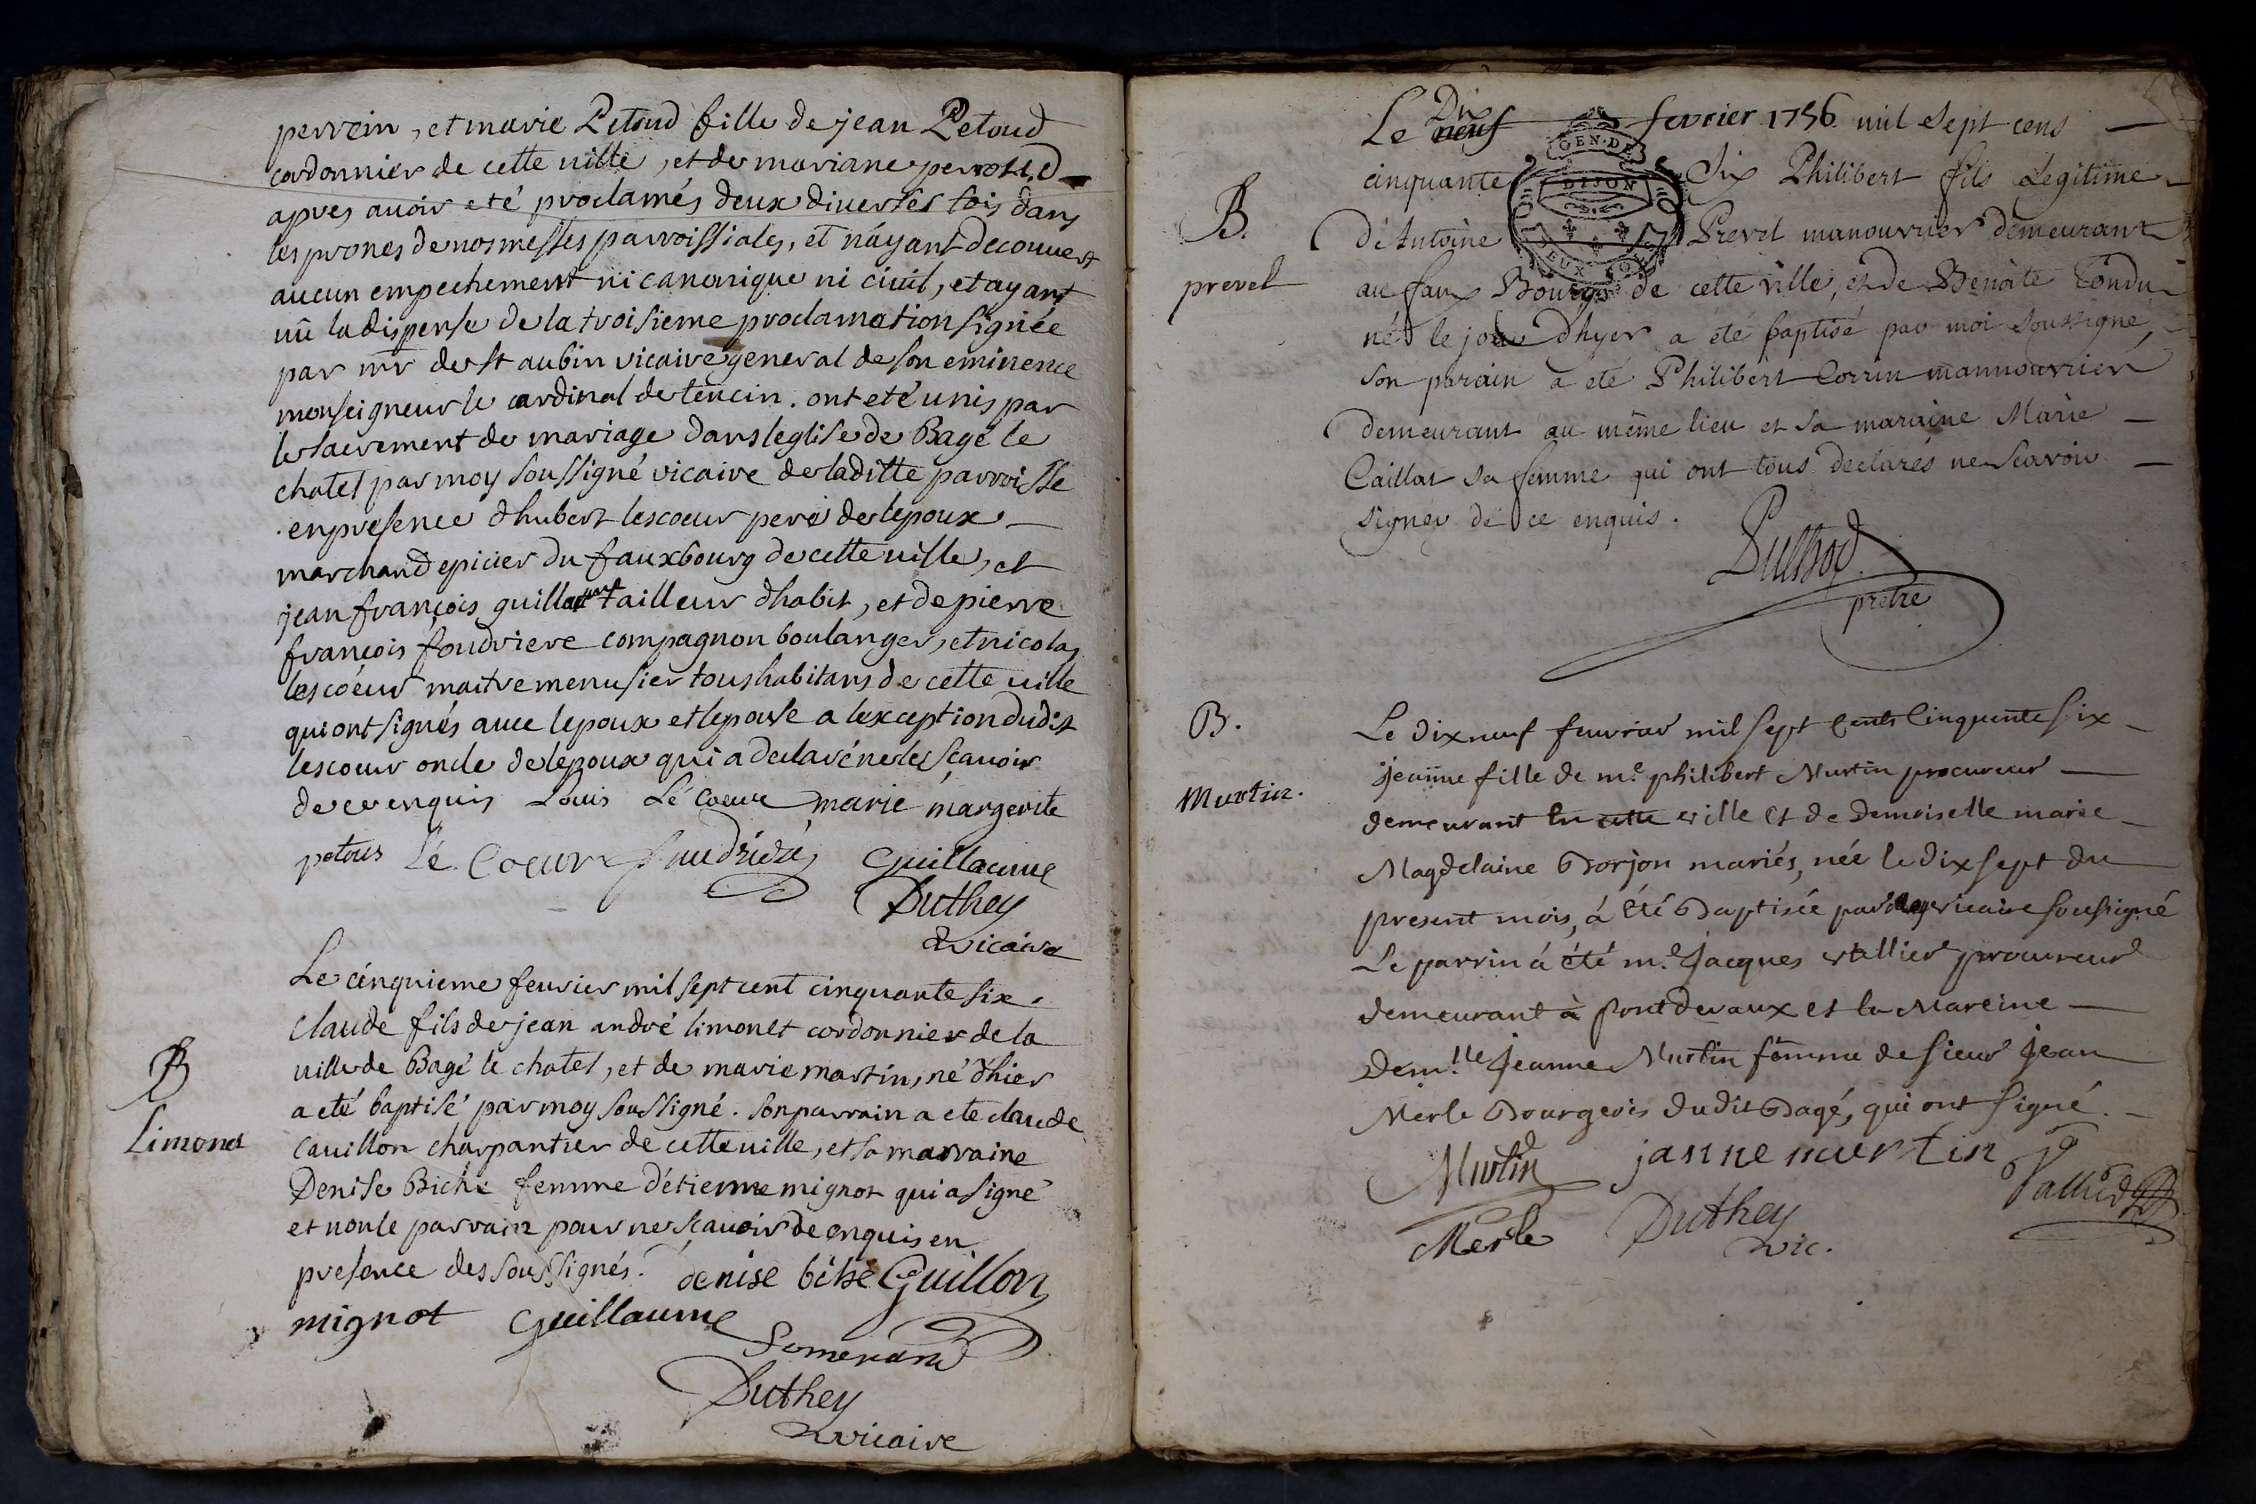 perrein, et marie Petoud fille de jean Petoud
cordonnier de cette ville, et de mariane perroud
apres avoir eté proclamés deux diverses fois dans
les prones de nos messes parroissiales, et n'ayant decouvert
aucun empechement ni canonique ni civil, et ayant
vû la dispense de la troisieme proclamation signée
par mr de st aubin vicaire general de son eminence
monseigneur le cardinal de tencin. ont eté unis par
le sacrement de mariage dans leglise de Bagé le
chatel par moy soussigné vicaire de laditte parroisse
en presence d'hubert lescoeur pere de lepoux
marchand epicier du fauxbourg de cette ville, et
jean françois guillaume tailleur dhabit, et de pierre
françois foudriere compagnon boulanger, et nicolas
lescoeur maitre menusier tous habitans de cette ville
qui ont signés avec lepoux et lepouse a lexception dudit
lescoeur oncle de lepoux qui a declaré ne le scavoir
de ce enquis Louis Lé Coeur marie margerite
petous Lé Coeur Guillaume
Duthey
vicaire
Le cinquieme fevrier mil sept cent cinquante six.
B
Limonet
claude fils de jean andré limonet cordonnier de la
ville de Bagé le chatel, et de marie martin, né d'hier
a eté baptisé par moy soussigné. son parrain a ete claude
cavillon charpantier de cette ville, et sa marraine
Denise Biche femme d'étienne mignot qui a signé
et non le parrain pour ne scavoir de enquis en
presence des soussignés. denise bihe Guillon
mignot Guillaume
Duthey
vicaire
Le Dix neuf fevrier 1756 mil sept cens
GEN. DE
DIJON
DEUX SOLS
B.
prevel
cinquante Six Philibert fils Legitime
d'Antoine Prevel manouvrier demeurant
au faux Bourg de cette ville, et de Benoite Condu
né le jour d'hyer a été baptisé par moi soussigné,
son parain a eté Philibert Corrin mannouvrier
demeurant au même lieu et sa maraine Marie
Caillat sa femme qui ont tous declarés ne scavoir
signer de ce enquis.
prêtre
B.
Murtin.
Le dixneuf fevrier mil sept cents cinquante six
jeanne fille de me philibert Murtin procureur
demeurant en cette ville et de Demoiselle marie
Magdelaine Borjon mariés, née le dix sept du
present mois, à été Baptisée par moy vicaire sousigné
Le parrin à été me Jacques procureur
demeurant à pontdevaux et la Mareine
demlle Jeanne Murtin fémme de sieur Jean
Merle Bourgeois dudit Bagé, qui ont signé.
Murtin janne murtin
Merle Duthey
vic.